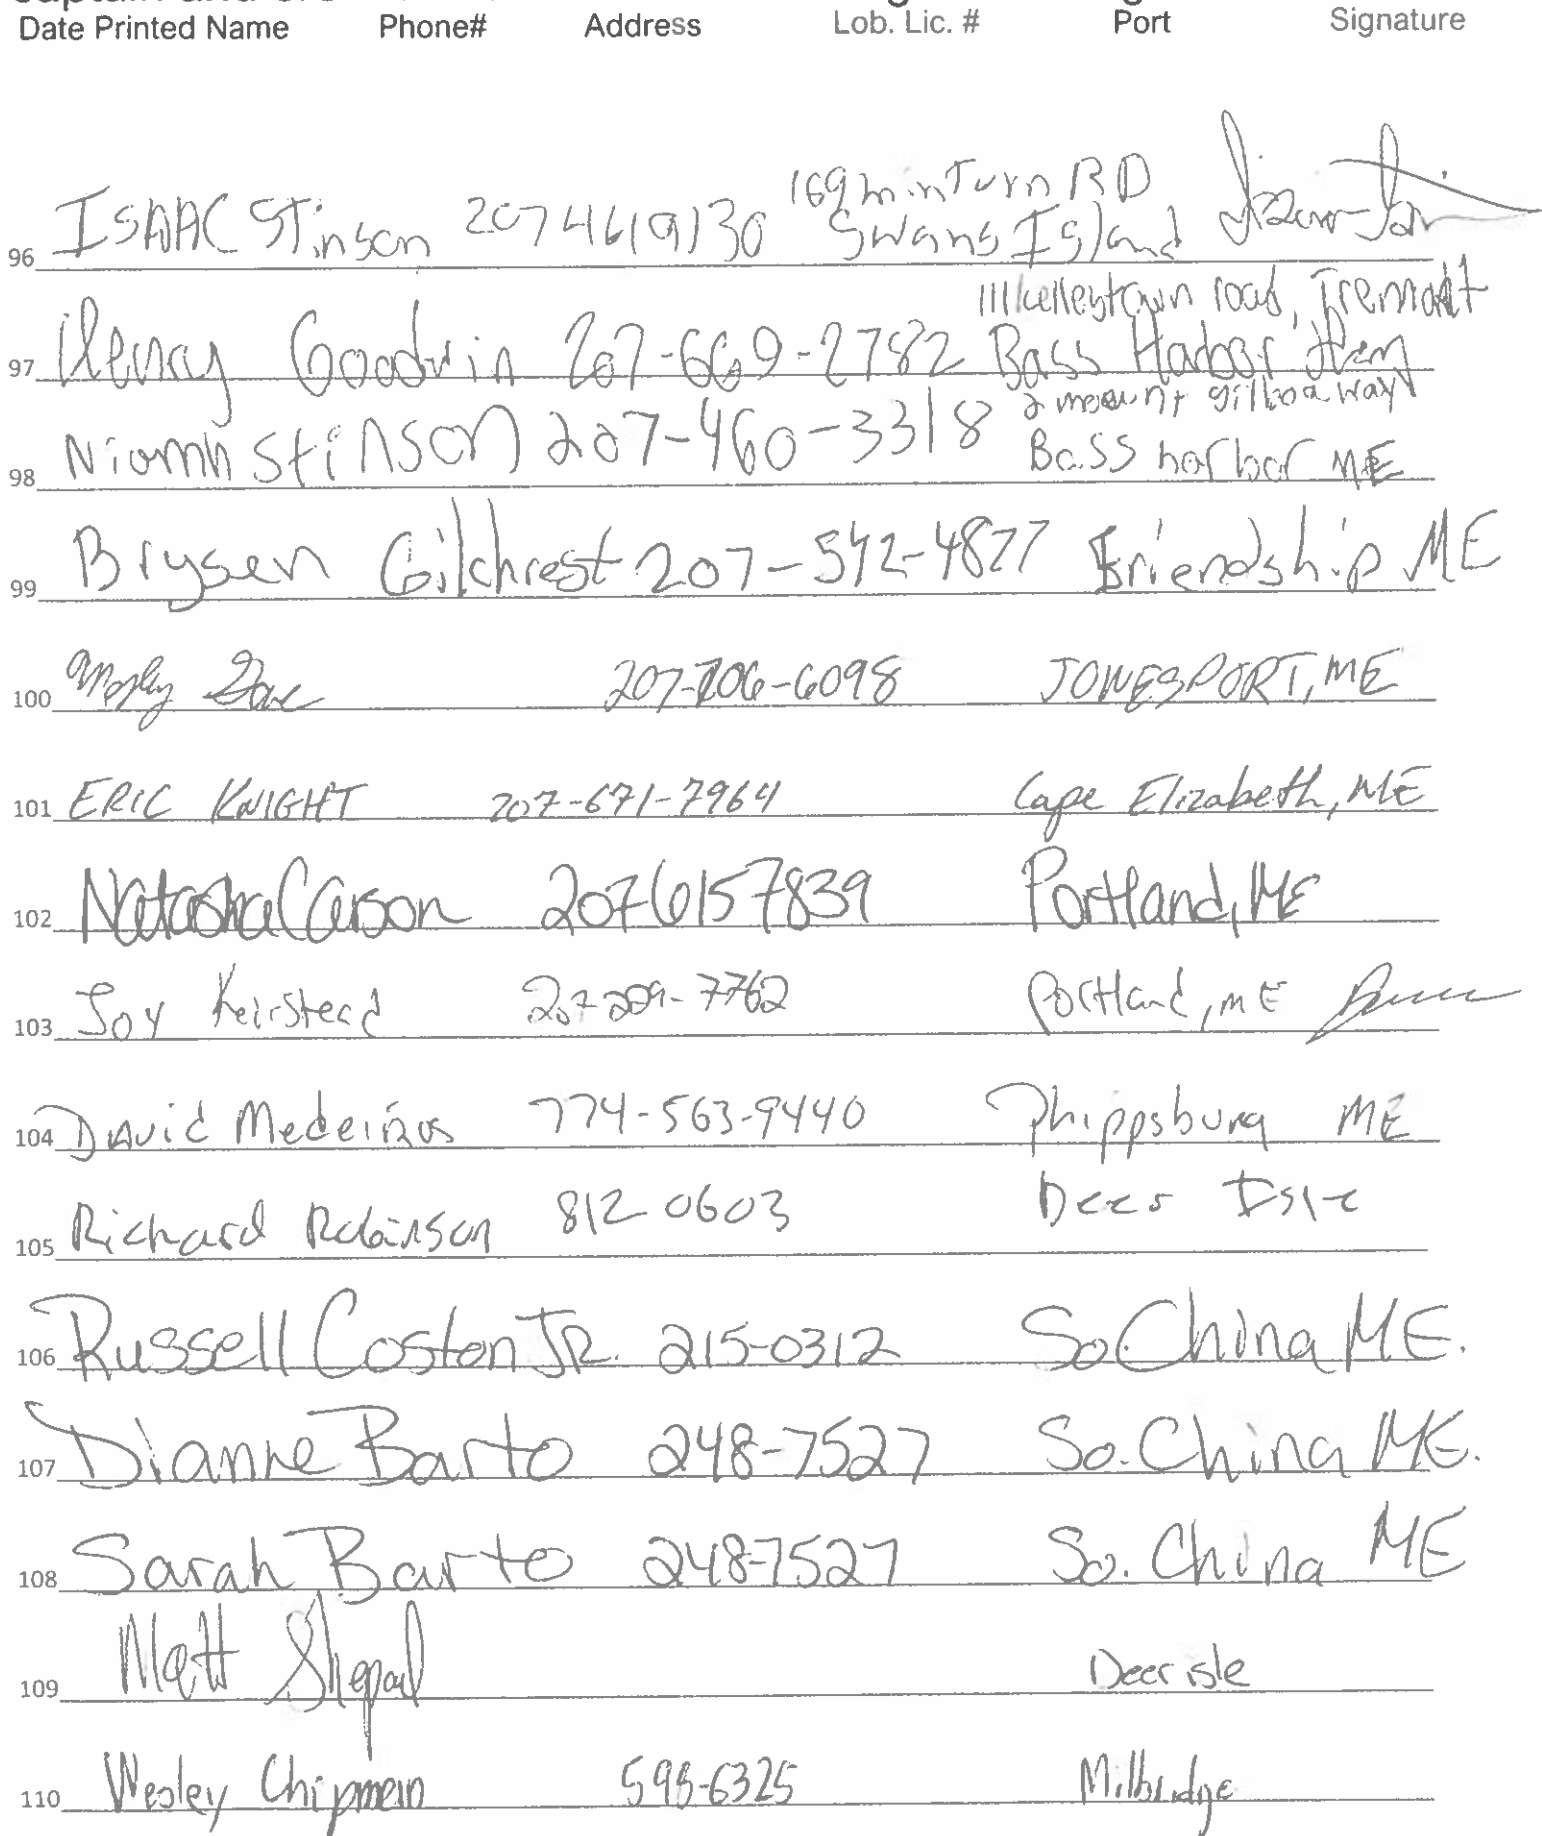 Date Printed Name Phone# Address Lob. Lic. # Port Signature
169 minTurn RD
96 ISAAC STinson 2074619130 Swans Island
111 kelleytown road, Tremont
97 Henry Goodwin 207-669-2782 Bass Harbor
2 mount gilboa way
98 Niamh Stinson 207-460-3318 Bass harbor ME
99 Brysen Gilchrest 207-542-4877 Friendship ME
100 207-706-6098 JONESPORT, ME
101 ERIC KNIGHT 207-671-7964 Cape Elizabeth, ME
102 Natasha Carson 2076157839 Portland, ME
103 Joy Keirstead 207-229-7762 Portland, ME
104 David Medeiros 774-563-9440 Phippsburg ME
105 Richard Robinson 812-0603 Deer Isle
106 Russell Coston JR. 215-0312 So. China ME.
107 Dianne Barto 248-7527 So. China ME.
108 Sarah Barto 248-7527 So. China ME
109 Matt Shepard Deer isle
110 Wesley Chipman 598-6325 Milbridge